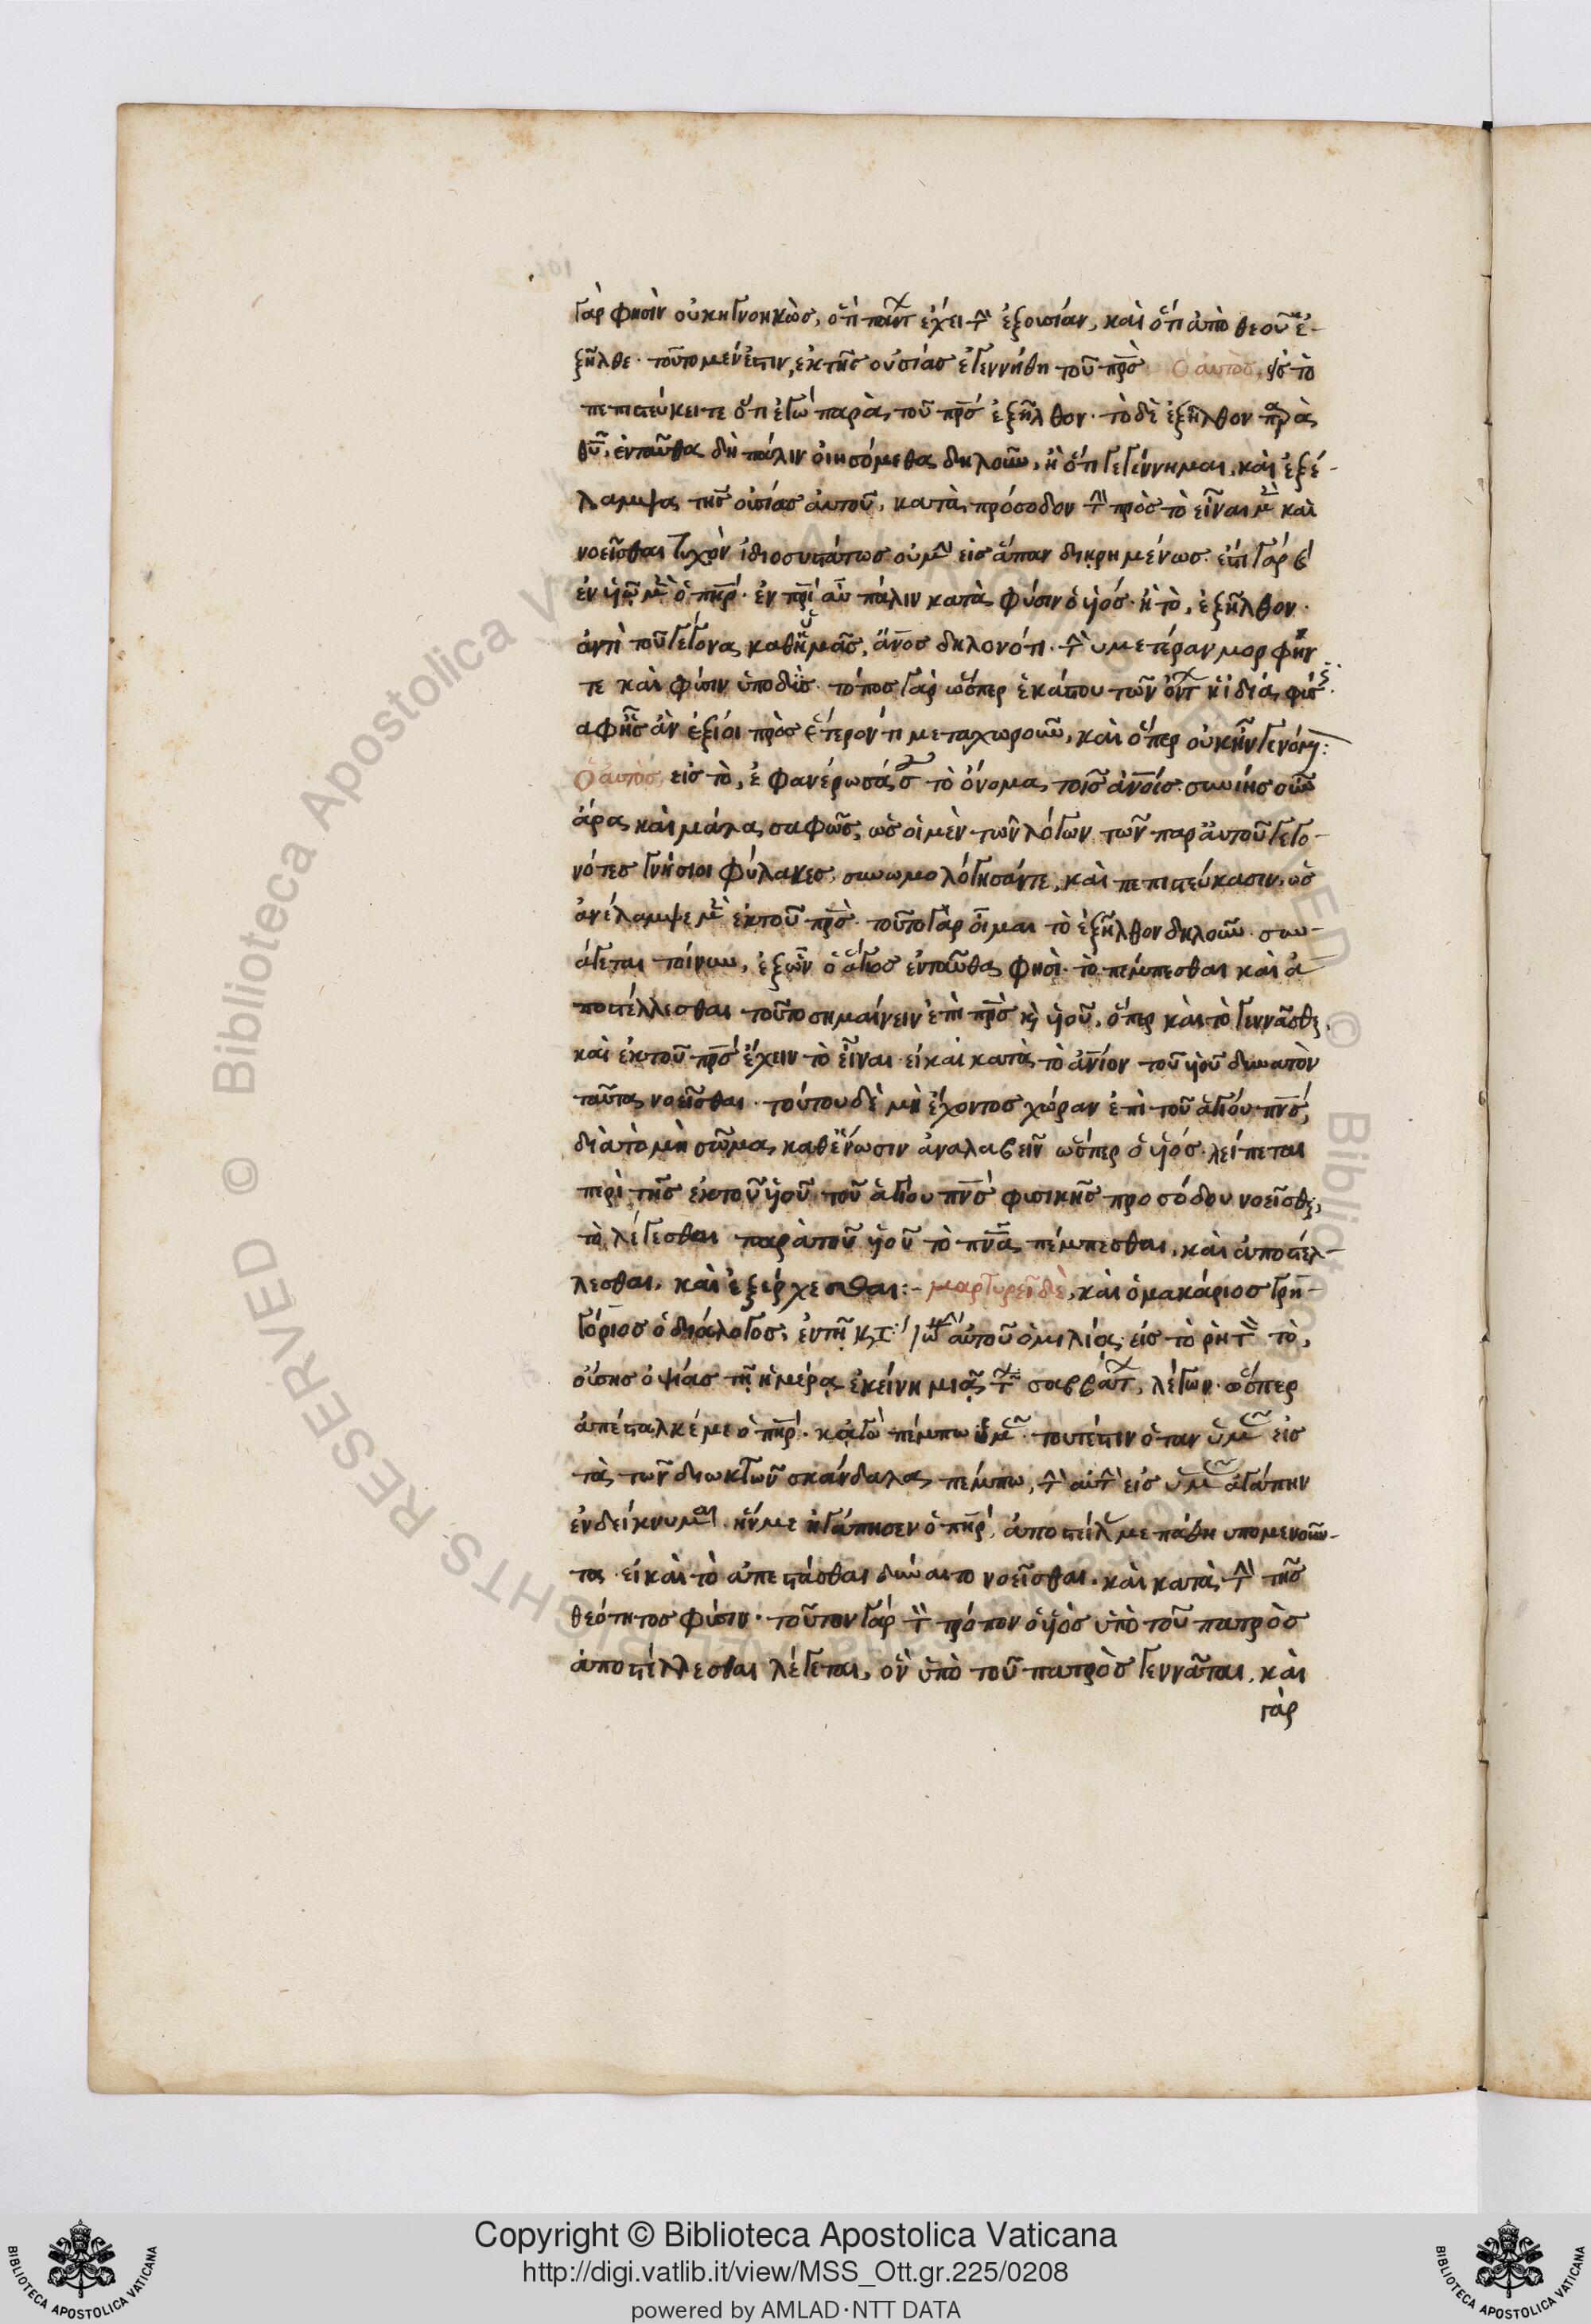 γὰρ φησὶν οὐκ ἠγνοηκὼς, ὅτι πάντ ἔχει τ ἐξουσίαν, καὶ ὅτι ἀπὸ θεοῦ ἐ-
ξῆλθε. τοῦτο μέν ἐστιν, ἐκ τῆς οὐσίας ἐγεννήθη τοῦ πρς Ὁ αὐτὸς, τὸ
πεπιστεύκειτε ὅτι ἐγὼ παρὰ τοῦ πρς ἐξῆλθον. τὸ δὲ ἐξῆλθον
θυ, ἐνταῦθα δὴ πάλιν οἰησόμεθα δηλοῦν, ἢ ὅτι γεγέννημαι, καὶ ἐξέ-
λαμψα τῆς οὐσίας αὐτοῦ, κατὰ πρόσοδον τ πρὸς τὸ εἶναι μ καὶ
νοεῖσθαι τυχὸν ἰδιοσυστάτως οὐ μ εἰς ἅπαν διῃρημένως. ἔστι γάρ
ἐν υἱῷ μ ὁ πηρ. ἐν πρι αὖ πάλιν κατὰ φύσιν ὁ υἱός. ἢ τὸ, ἐξῆλθον.
ἀντὶ τοῦ γέγονα καθ ἡμᾶς, ἄνος δηλονότι. τ ὑμετέραν μορφήν
τε καὶ φύσιν ὑποδὺς. τόπος γάρ ὥσπερ ἑκάστου τῶν ὄντ ἡ ἰδία φύσ
ἀφ ἧς ἂν ἐξίοι πρὸς ἕτερόν τι μεταχωροῦν, καὶ ὅπερ οὐκ ἦν γενόμ:
Ὁ αὐτός εἰς τὸ, ἐφανέρωσά σ τὸ ὄνομα τοῖς ἀνοίς. συνίης οὖν
ἄρα καὶ μάλα σαφῶς, ὡς οἱ μὲν τῶν λόγων τῶν παρ αὐτοῦ γεγο-
νότες γνήσιοι φύλακες, συνωμολόγησάντε, καὶ πεπιστεύκασιν, ὡς
ἀνέλαμψε μ ἐκ τοῦ πρς. τοῦτο γάρ οἶμαι τὸ ἐξῆλθον δηλοῦν. συν-
άγεται τοίνυν, ἐξ ὧν ὁ ἅγιος ἐνταῦθα φησὶ. τὸ πέμπεσθαι καὶ ἀ
ποστέλλεσθαι τοῦτο σημαίνειν ἐπὶ πρς κ υἱοῦ, ὅπερ καὶ τὸ γεννᾶσθ,
καὶ ἐκ τοῦ πρς ἔχειν τὸ εἶναι. εἰ καὶ κατὰ τὸ ἀνιον τοῦ υἱοῦ δυνατὸν
ταῦτα νοεῖσθαι. τούτου δὲ μὴ ἔχοντος χώραν ἐπὶ τοῦ ἁγίου πνς,
διὰ τὸ μὴ σῶμα καθ ἕνωσιν ἀναλαβεῖν ὥσπερ ὁ υἱός. λείπεται
περὶ τῆς ἐκ τοῦ υἱοῦ τοῦ ἁγίου πνς φυσικῆς προσόδου νοεῖσθ,
τὸ λέγεσθαι παρὰ τοῦ υἱοῦ τὸ πνα πέμπεσθαι, καὶ ἀποστέλ-
λεσθαι, καὶ ἐξέρχεσθαι:- μαρτυρεῖ δὲ, καὶ ὁ μακάριος γρη-
γόριος ὁ διάλογος, ἐν τῇ αὐτοῦ ὁμιλίᾳ. εἰς τὸ ῥητ τὸ,
οὔσης ὀψίας τῇ ἡμέρᾳ ἐκείνη μιᾷ τ σαββάτ, λέγων. ὥσπερ
ἀπέσταλκέ με ὁ πηρ. κἀγὼ πέμπω ὑμ. τουτέστιν ὅταν ὑμ εἰς
τὰ τῶν διωκτῶν σκάνδαλα πέμπω, τ αὐτ εἰς ὑμ ἀγάπην
ἐνδείκνυμαι. ἥν με ἠγάπησεν ὁ πηρ, ἀποστείλ με πάθη ὑπομενοῦν-
τα. εἰ καὶ τὸ ἀπεστάσθαι δύναιτο νοεῖσθαι. καὶ κατὰ τ τῆς
θεότητος φύσιν. τοῦτον γάρ τ τρόπον ὁ υἱὸς ὑπὸ τοῦ πατρὸς
ἀποστέλλεσθαι λέγεται, ὃν ὑπὸ τοῦ πατρὸς γεννᾶται. καὶ
γὰρ
Copyright © Biblioteca Apostolica Vaticana
http://digi.vatlib.it/view/MSS_Ott.gr.225/0208
powered by AMLAD·NTT DATA